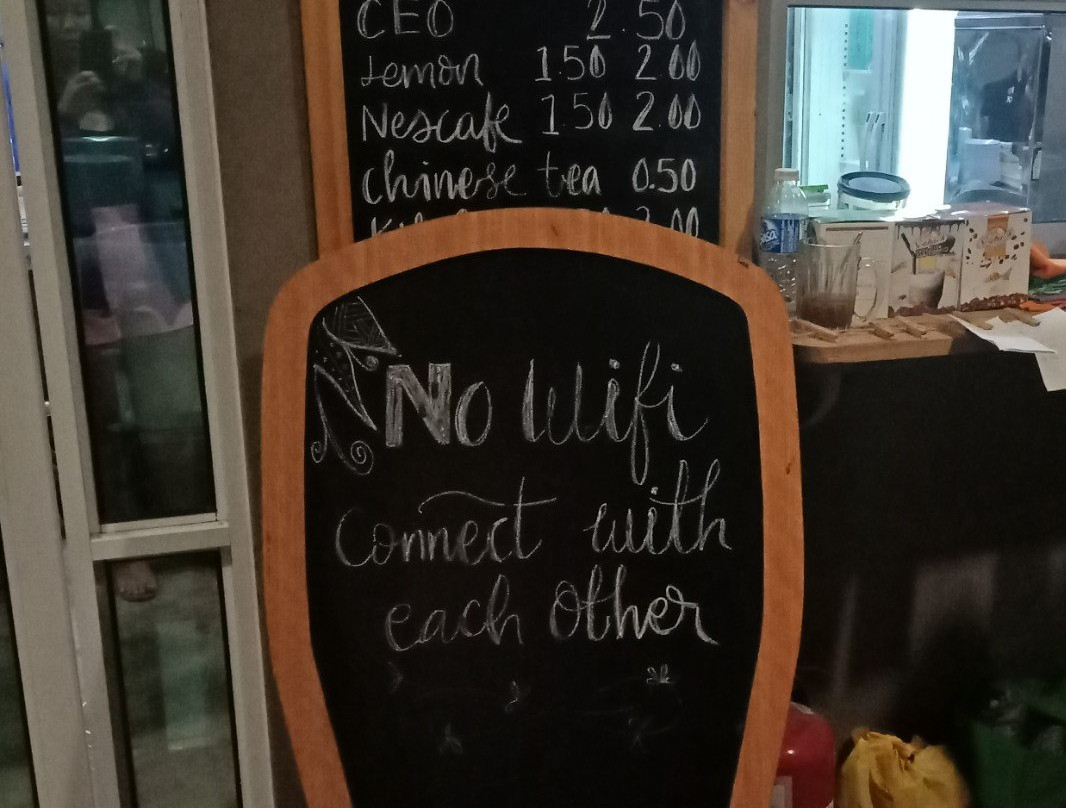 CEO 2.50
Lemon 1.50 2.00
Nescafe 1.50 2.00
Chinese tea 0.50
No Wifi
Connect with
each other